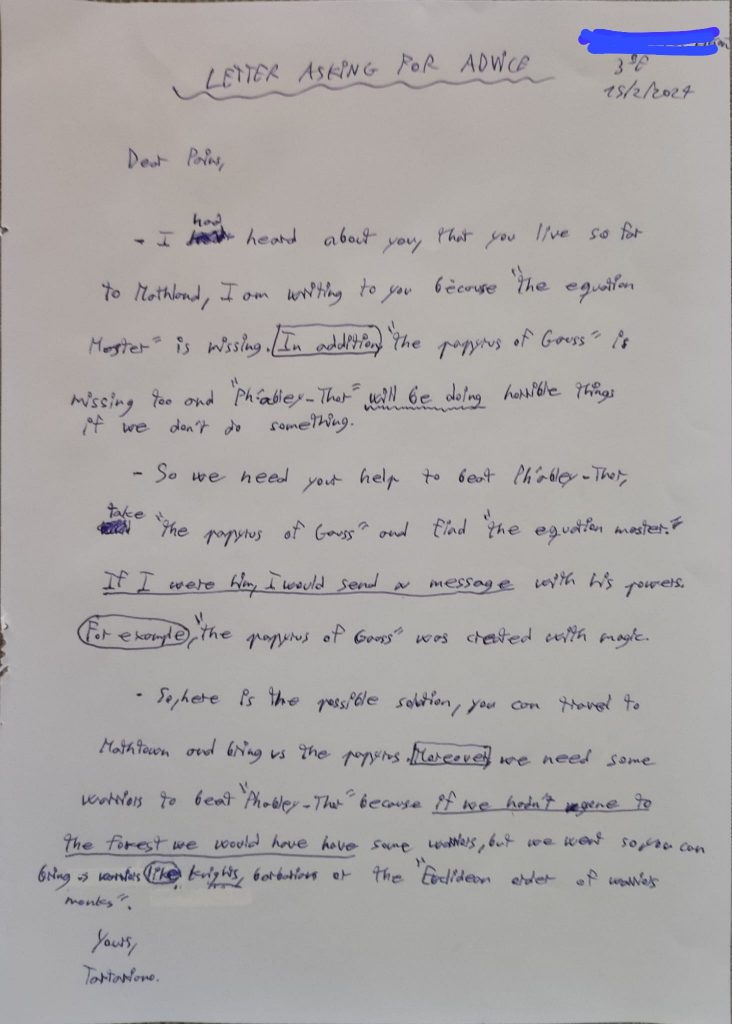 LETTER ASKING FOR ADVICE
3ºE
15/2/2024
Dear Poins,
- I had heard about you, that you live so far
to Mathland, I am writing to you because "the equation
Master" is missing. In addition, "the papyrus of Gauss" is
missing too and "Ph'abley-Thor" will be doing horrible things
if we don't do something.
- So we need your help to beat Ph'abley-Thor,
take "the papyrus of Gauss" and find "the equation master."
If I were him, I would send a message with his powers.
For example, "the papyrus of Gauss" was created with magic.
- So, here is the possible solution, you can travel to
Mathtown and bring us the papyrus. Moreover, we need some
warriors to beat "Phabley-Thor" because if we hadn't gone to
the forest we would have have some warriors, but we went so, you can
bring us warriors like knights, barbarians or the "Euclidean order of warriors
monks".
Yours,
Tartariano.